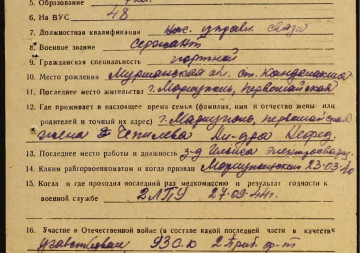 5. Образование
6. На ВУС 48
7. Должностная квалификация нач. управл. связи
8. Военное звание Сержант
9. Гражданская специальность портной
10. Место рождения Мурманская обл. ст. Кандалакша
11. Последнее место жительства г. Мариуполь, Первомайская
12. Где проживает в настоящее время семья (фамилия, имя и отчество жены или
родителей и точный их адрес) г. Мариуполь, Первомайская
жена Чепилева
13. Последнее место работы и должность з-д Ильича электросварщ.
14. Каким райгорвоенкоматом и когда призван Мариупольский 23-03-40
15. Когда и где проходил последний раз медкомиссию и результат годности к
военной службе 2 ЛПУ 27-09-44 г.
16. Участие в Отечественной войне (в составе какой последней части в качестве
участвовал 93 2 Приб. ф-т